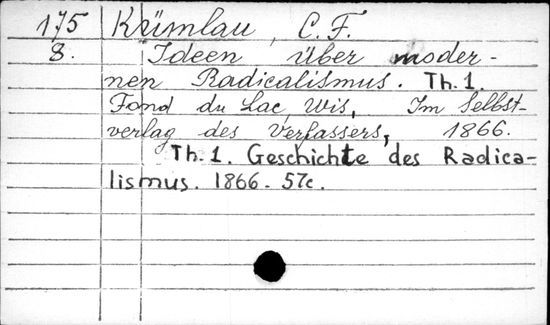 175 Krümlau, C. F.
8. Ideen über moder-
nen Radicalismus. Th. 1.
Fond du Lac, Wis, Im Selbst-
verlag des Verfassers, 1866.
Th. 1. Geschichte des Radica-
lismus. 1866. 57c.